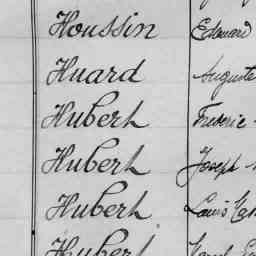 Houssin Edouard
Huard Auguste
Hubert Frederic
Hubert Joseph
Hubert Louis
Hubert